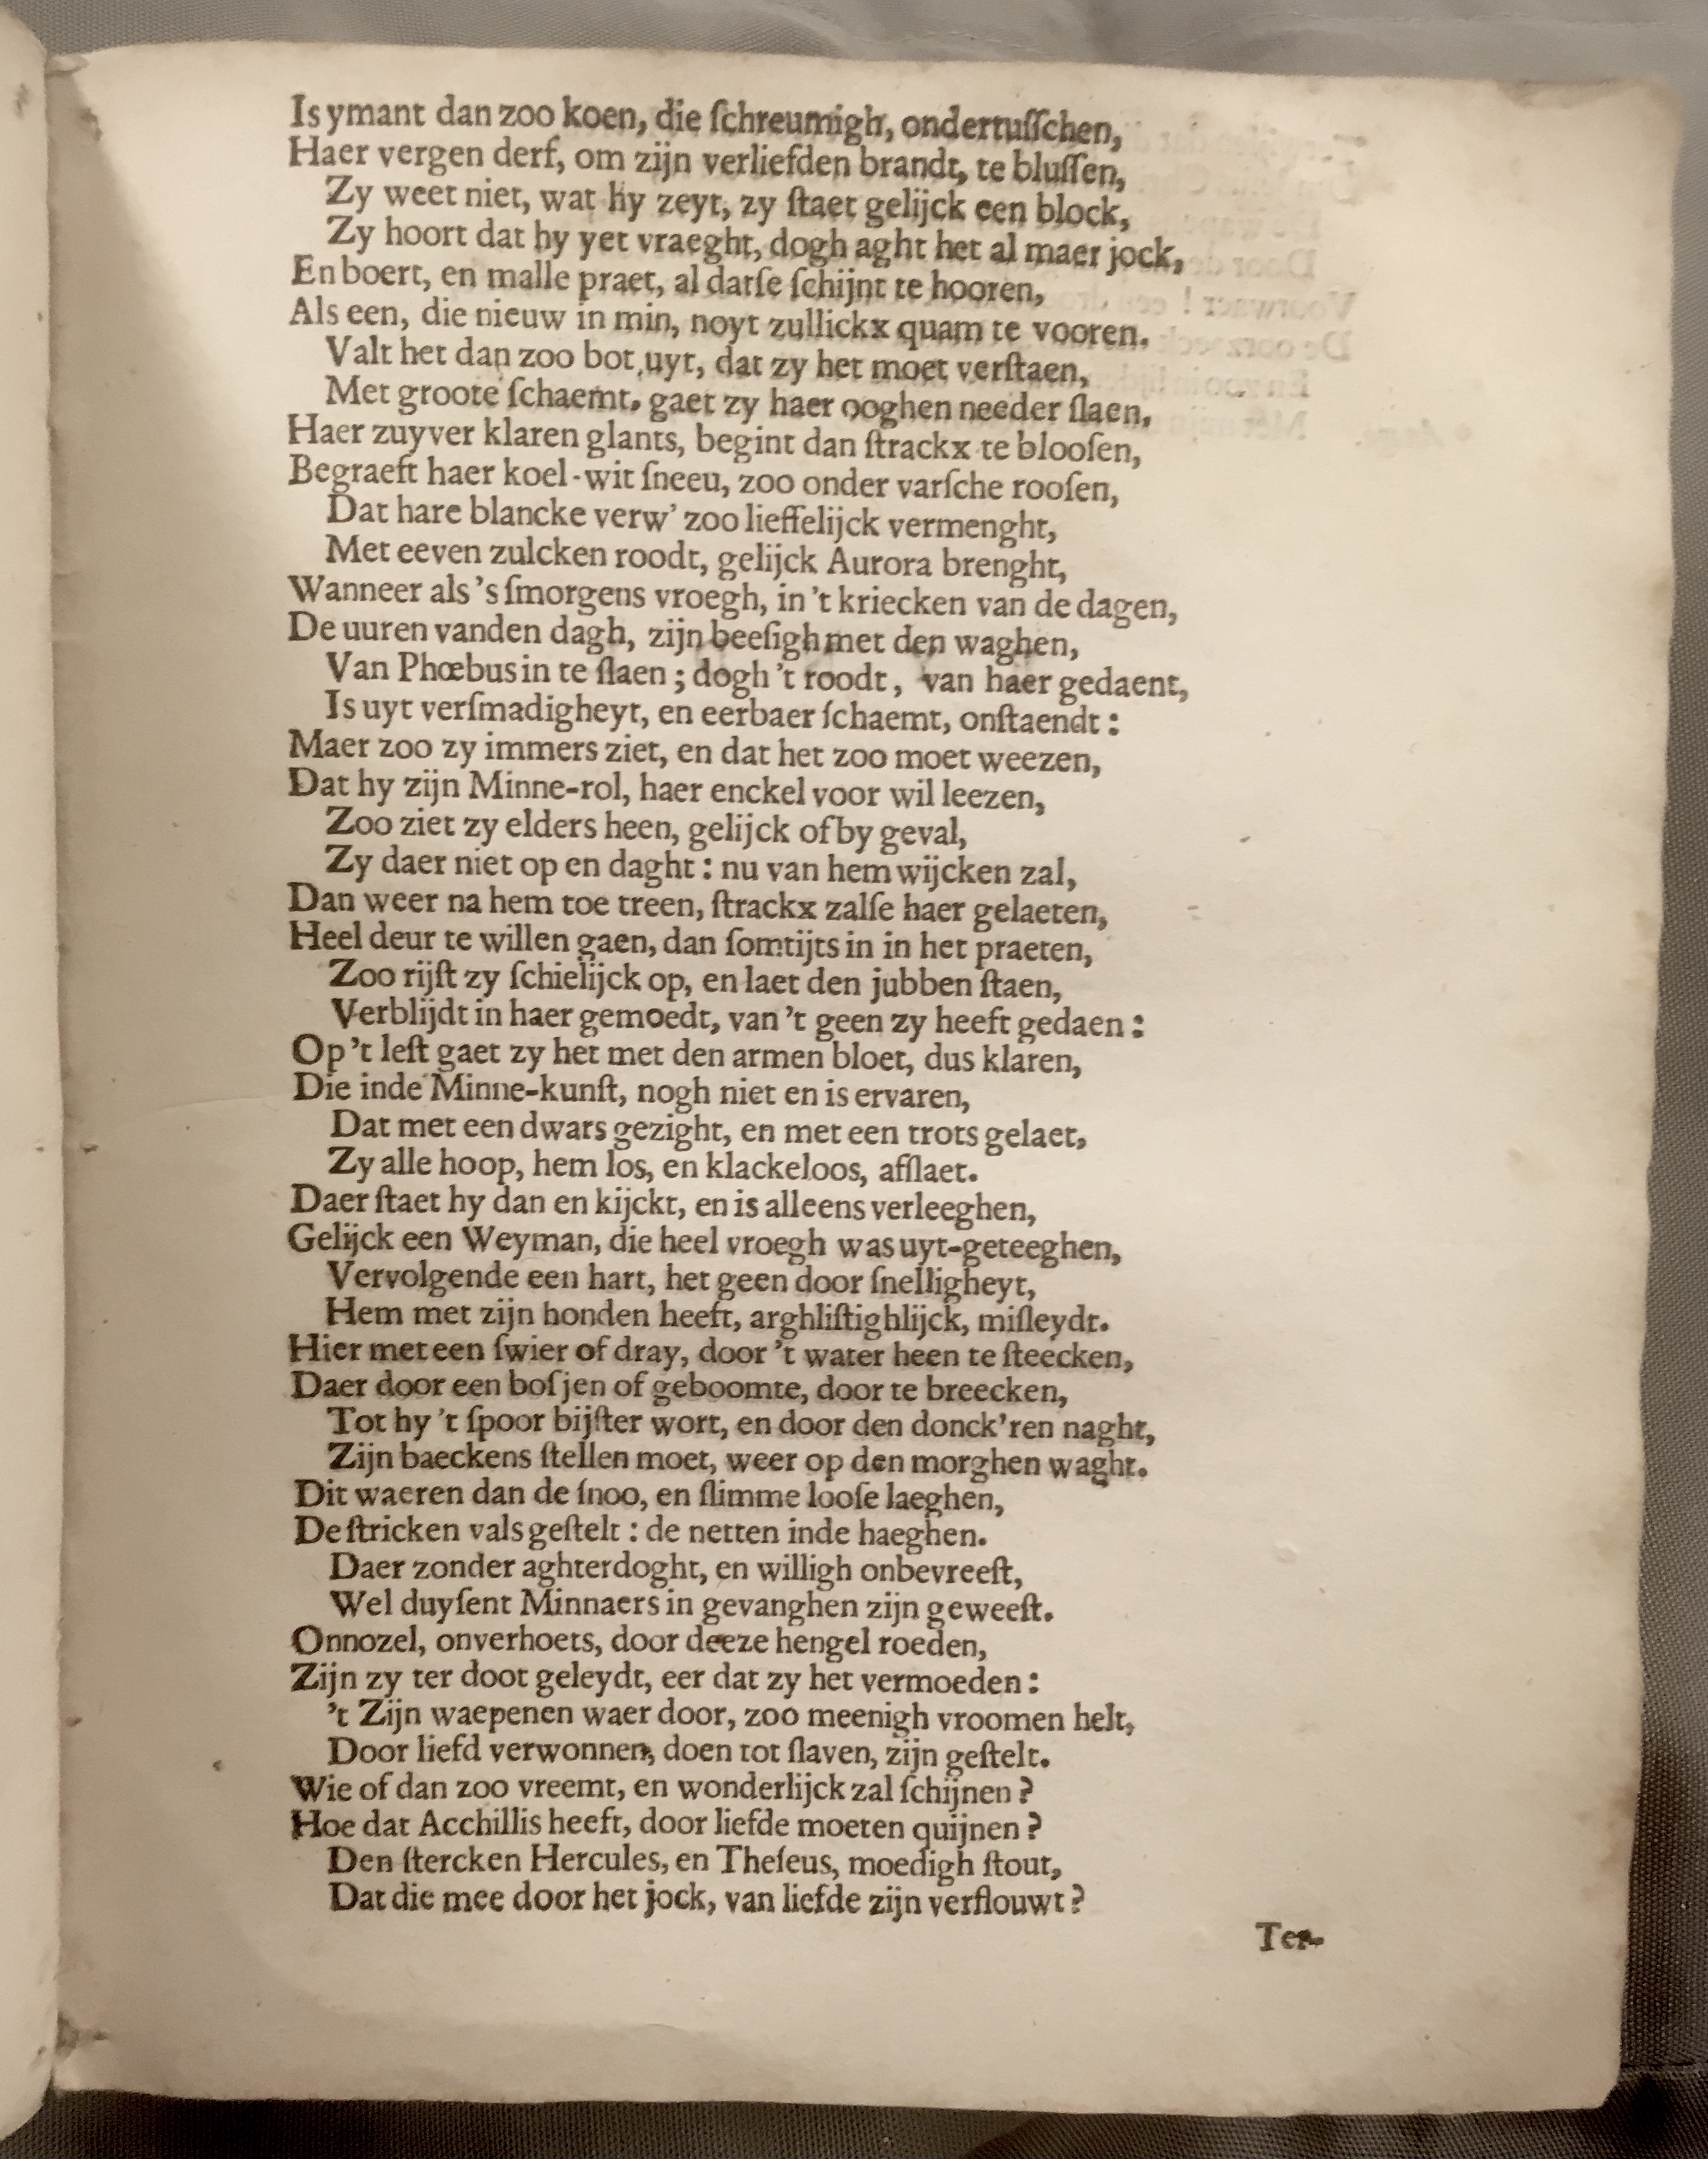 Is ymant dan zoo koen, die ſchreumigh, ondertuſſchen,
Haer vergen derf, om zijn verliefden brandt, te bluſſen,
Zy weet niet, wat hy zeyt, zy ſtaet gelijck een block,
Zy hoort dat hy yet vraeght, dogh aght het al maer jock,
En boert, en malle praet, al datſe ſchijnt te hooren,
Als een, die nieuw in min, noyt zullickx quam te vooren.
Valt het dan zoo bot uyt, dat zy het moet verſtaen,
Met groote ſchaemt, gaet zy haer ooghen needer ſlaen,
Haer zuyver klaren glants, begint dan ſtrackx te blooſen,
Begraeft haer koel-wit ſneeu, zoo onder varſche rooſen,
Dat hare blancke verw' zoo lieffelijck vermenght,
Met eeven zulcken roodt, gelijck Aurora brenght,
Wanneer als 's ſmorgens vroegh, in 't kriecken van de dagen,
De uuren vanden dagh, zijn beeſigh met den waghen,
Van Phœbus in te ſlaen; dogh 't roodt, van haer gedaent,
Is uyt verſmadigheyt, en eerbaer ſchaemt, onſtaendt:
Maer zoo zy immers ziet, en dat het zoo moet weezen,
Dat hy zijn Minne-rol, haer enckel voor wil leezen,
Zoo ziet zy elders heen, gelijck of by geval,
Zy daer niet op en daght: nu van hem wijcken zal,
Dan weer na hem toe treen, ſtrackx zalſe haer gelaeten,
Heel deur te willen gaen, dan ſomtijts in in het praeten,
Zoo rijſt zy ſchielijck op, en laet den jubben ſtaen,
Verblijdt in haer gemoedt, van 't geen zy heeft gedaen:
Op 't leſt gaet zy het met den armen bloet, dus klaren,
Die inde Minne-kunſt, nogh niet en is ervaren,
Dat met een dwars gezight, en met een trots gelaet,
Zy alle hoop, hem los, en klackeloos, afſlaet.
Daer ſtaet hy dan en kijckt, en is alleens verleeghen,
Gelijck een Weyman, die heel vroegh was uyt-geteeghen,
Vervolgende een hart, het geen door ſnelligheyt,
Hem met zijn honden heeft, arghliſtighlijck, miſleydt.
Hier met een ſwier of dray, door 't water heen te ſteecken,
Daer door een boſjen of geboomte, door te breecken,
Tot hy 't ſpoor bijſter wort, en door den donck'ren naght,
Zijn baeckens ſtellen moet, weer op den morghen waght.
Dit waeren dan de ſnoo, en ſlimme looſe laeghen,
De ſtricken vals geſtelt: de netten inde haeghen.
Daer zonder aghterdoght, en willigh onbevreeſt,
Wel duyſent Minnaers in gevanghen zijn geweeſt.
Onnozel, onverhoets, door deeze hengel roeden,
Zijn zy ter doot geleydt, eer dat zy het vermoeden:
't Zijn waepenen waer door, zoo meenigh vroomen helt,
Door liefd verwonnen, doen tot ſlaven, zijn geſtelt.
Wie of dan zoo vreemt, en wonderlijck zal ſchijnen?
Hoe dat Acchillis heeft, door liefde moeten quijnen?
Den ſtercken Hercules, en Theſeus, moedigh ſtout,
Dat die mee door het jock, van liefde zijn verflouwt?
Ter-